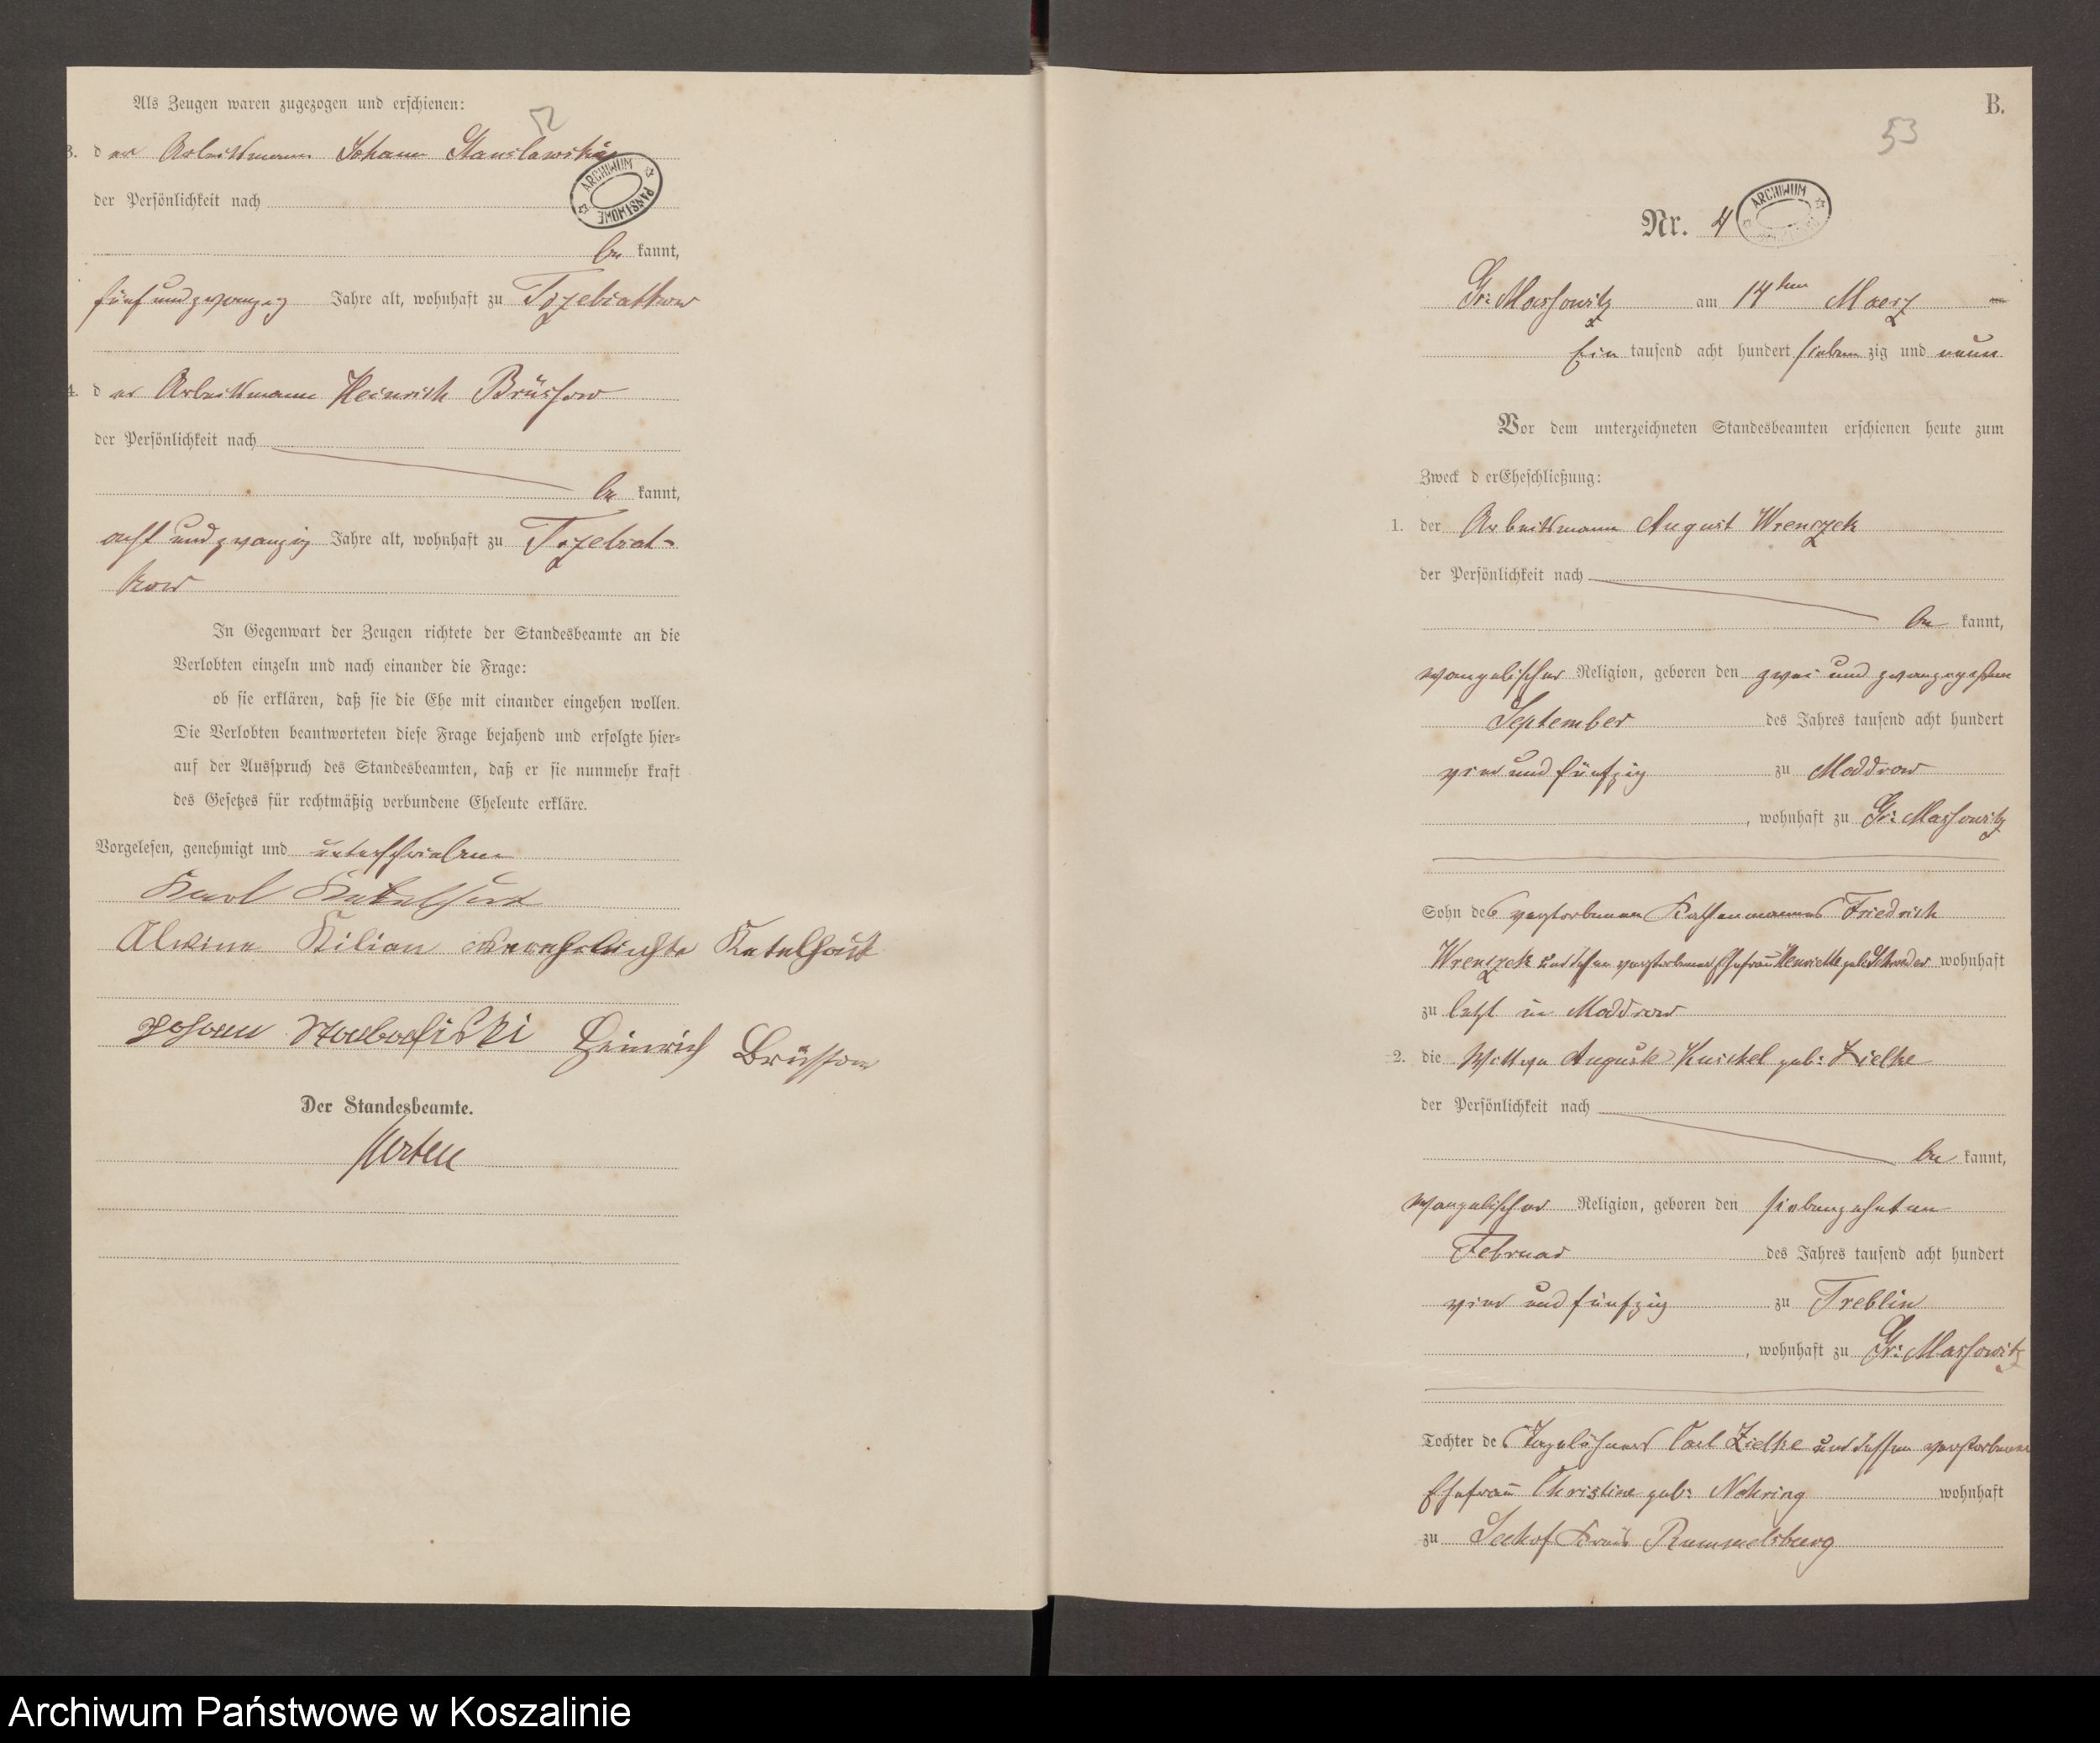 Als Zeugen waren zugezogen und erschienen:
52
3. der Arbeitsmann Johann Stanslawski
ARCHIWUM PAŃSTWOWE
der Persönlichkeit nach
be kannt,
fünf und zwanzig Jahre alt, wohnhaft zu Trzebiatkow
4. der Arbeitsmann Heinrich Brüssow
der Persönlichkeit nach
be kannt,
acht und zwanzig Jahre alt, wohnhaft zu Trzebiat-
kow
In Gegenwart der Zeugen richtete der Standesbeamte an die
Verlobten einzeln und nach einander die Frage:
ob sie erklären, daß sie die Ehe mit einander eingehen wollen.
Die Verlobten beantworteten diese Frage bejahend und erfolgte hier-
auf der Ausspruch des Standesbeamten, daß er sie nunmehr kraft
des Gesetzes für rechtmäßig verbundene Eheleute erkläre.
Vorgelesen, genehmigt und unterschrieben
Karl Ketelhut
Alwine Kilian verehelichte Ketelhut
Johann Heinrich Brüssow
Der Standesbeamte.
B.
53
Nr. 4
ARCHIWUM
Gr: Massowitz am 14ten Maerz
Ein tausend acht hundert sieben zig und neun
Vor dem unterzeichneten Standesbeamten erschienen heute zum
Zweck d erEheschließung:
1. der Arbeitsmann August Wrenczek
der Persönlichkeit nach
be kannt,
evangelischer Religion, geboren den zwei und zwanzigsten
September des Jahres tausend acht hundert
vier und fünfzig zu Moddrow
, wohnhaft zu Gr: Massowitz
Sohn des verstorbenen Kathenmannes Friedrich
Wrenczek und dessen verstorbenen Ehefrau Henriette geb: Schroeder wohnhaft
zu letzt in Moddrow
2. die Wittwe Auguste Kuschel geb: Zielke
der Persönlichkeit nach
be kannt,
evangelischer Religion, geboren den siebenzehnten
Februar des Jahres tausend acht hundert
vier und fünfzig zu Treblin
, wohnhaft zu Gr: Massowitz
Tochter des Tagelöhners Carl Zielke und dessen verstorbenen
Ehefrau Christine geb: Nehring wohnhaft
zu Seehof Kreis Rummelsburg
Archiwum Państwowe w Koszalinie